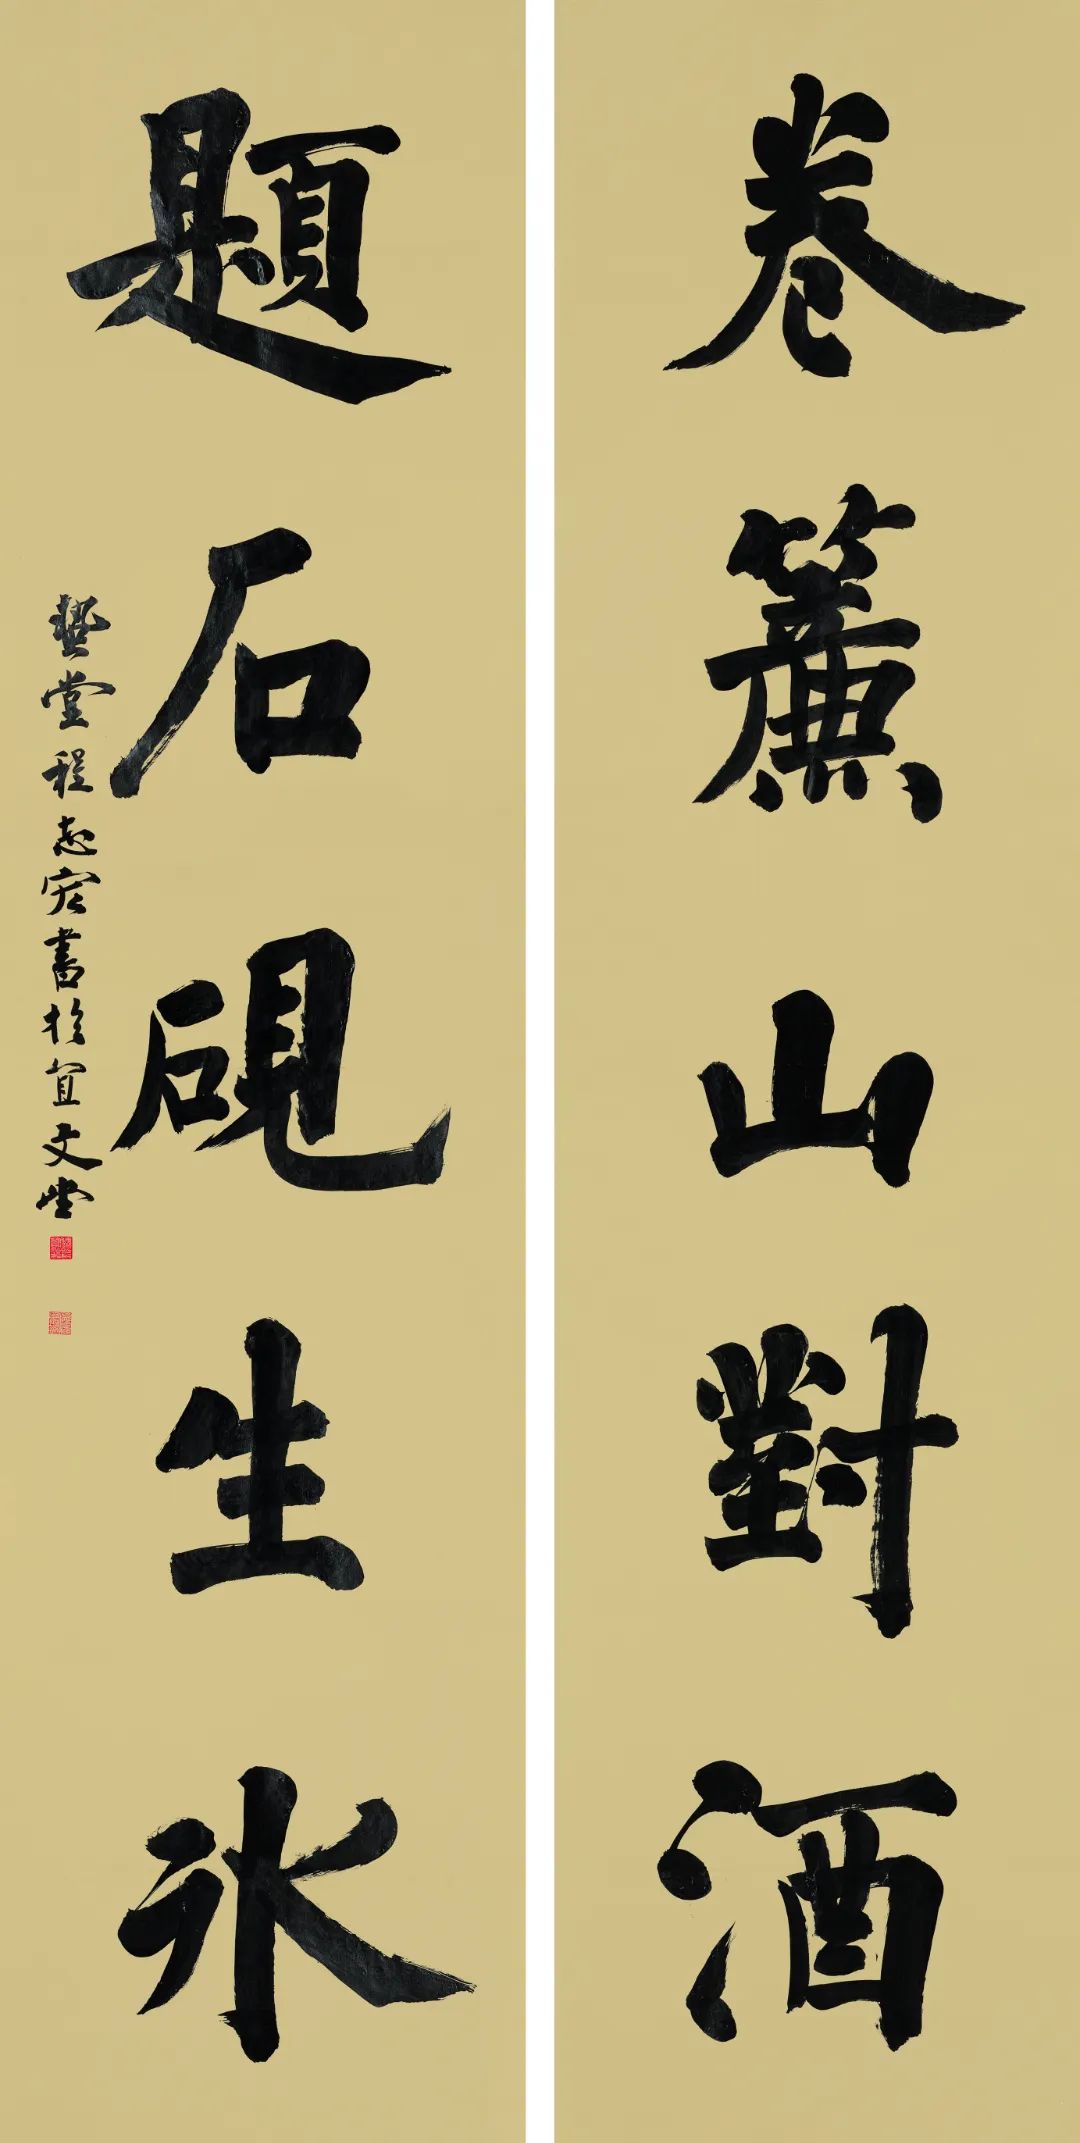 卷簾山對酒
題石硯生冰
藝堂程志宏書於宜文堂